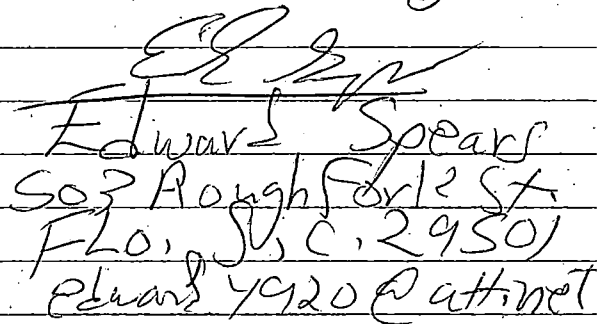 Edward Spears
503 Rough Fork St.
FLO., S.C. 29501
edwards4920@att.net